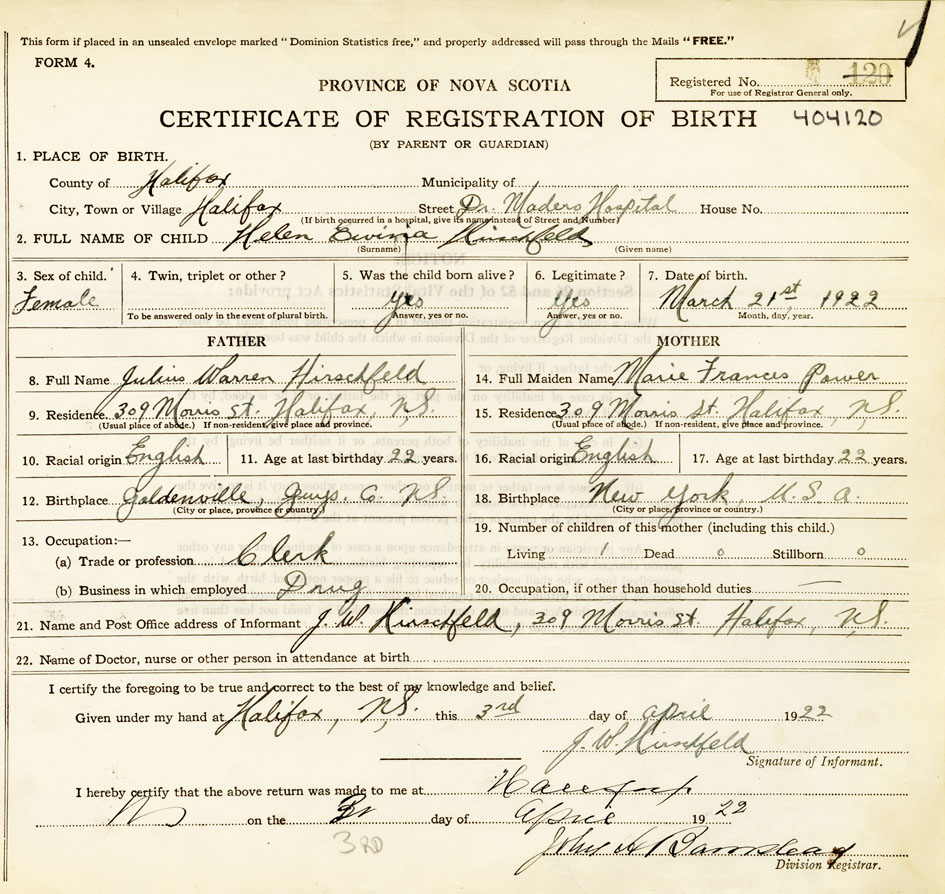 This form if placed in an unsealed envelope marked "Dominion Statistics free," and properly addressed will pass through the Mails "FREE."
FORM 4.
PROVINCE OF NOVA SCOTIA
Registered No. 120
For use of Registrar General only.
CERTIFICATE OF REGISTRATION OF BIRTH 404120
(BY PARENT OR GUARDIAN)
1. PLACE OF BIRTH.
County of Halifax Municipality of
City, Town or Village Halifax Street Dr. Maders Hospital House No.
(If birth occurred in a hospital, give its name instead of Street and Number)
2. FULL NAME OF CHILD Helen Hirschfeld
(Surname) (Given name)
3. Sex of child. 4. Twin, triplet or other? 5. Was the child born alive? 6. Legitimate? 7. Date of birth.
Female Yes Yes March 21st 1922
To be answered only in the event of plural birth. Answer, yes or no. Answer, yes or no. Month, day, year.
FATHER MOTHER
8. Full Name Julius Warren Hirschfeld 14. Full Maiden Name Marie Frances Power
9. Residence 309 Morris St. Halifax, N.S. 15. Residence 309 Morris St. Halifax, N.S.
(Usual place of abode.) If non-resident, give place and province. (Usual place of abode.) If non-resident, give place and province.
10. Racial origin English 11. Age at last birthday 22 years. 16. Racial origin English 17. Age at last birthday 22 years.
12. Birthplace Goldenville, Guys. Co. N.S. 18. Birthplace New York U.S.A.
(City or place, province or country.) (City or place, province or country.)
13. Occupation:— 19. Number of children of this mother (including this child.)
(a) Trade or profession Clerk Living 1 Dead 0 Stillborn 0
(b) Business in which employed Drug 20. Occupation, if other than household duties —
21. Name and Post Office address of Informant J. W. Hirschfeld, 309 Morris St. Halifax, N.S.
22. Name of Doctor, nurse or other person in attendance at birth
I certify the foregoing to be true and correct to the best of my knowledge and belief.
Given under my hand at Halifax, N.S. this 3rd day of April 1922
J. W. Hirschfeld
Signature of Informant.
I hereby certify that the above return was made to me at Halifax
on the 3r day of April 1922
3RD
John A Barnstead
Division Registrar.